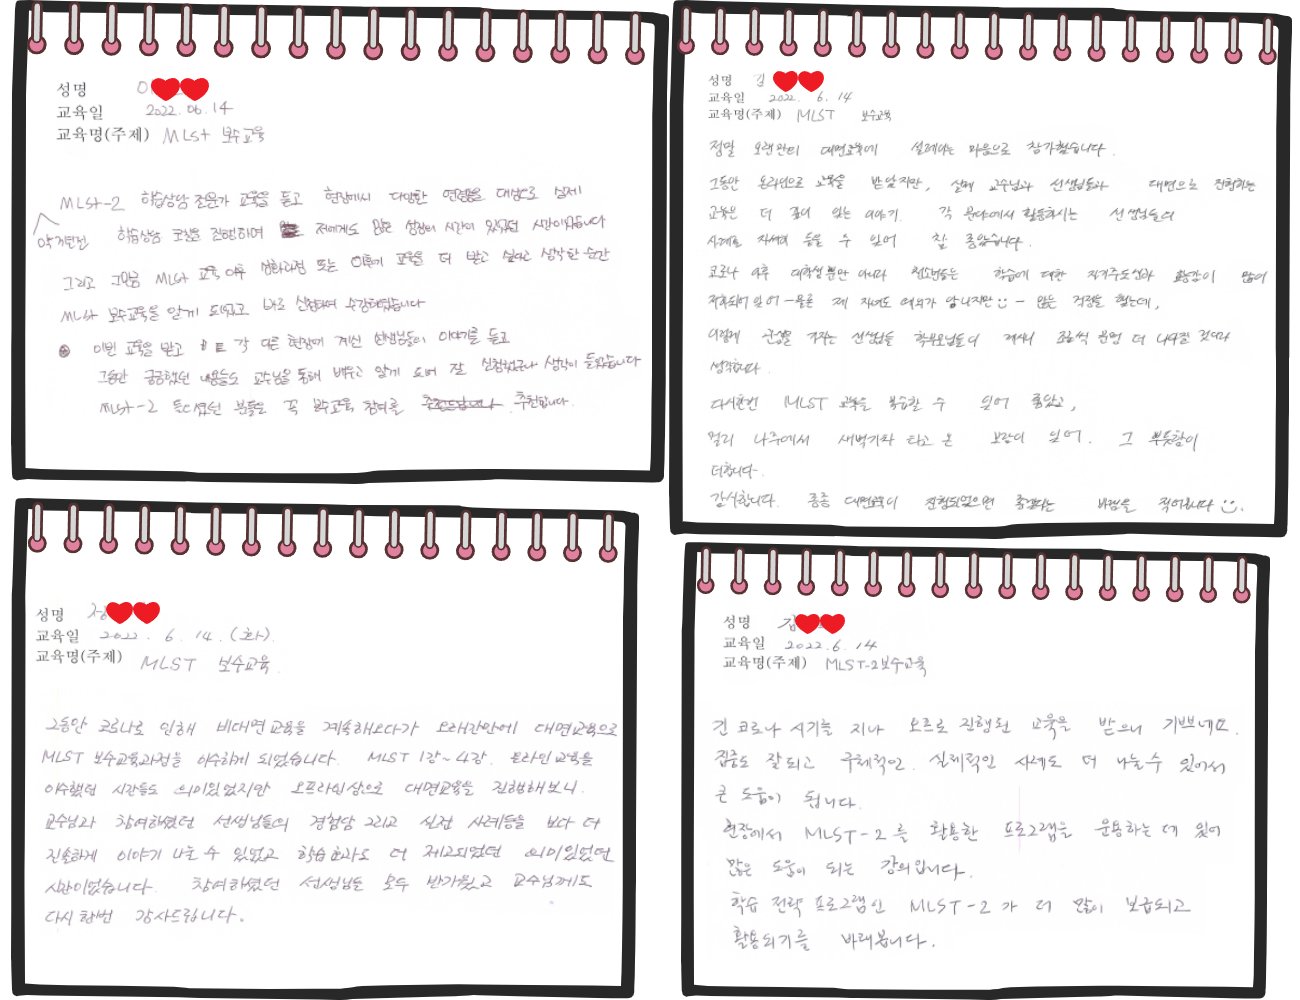 성명 이
교육일 2022. 06. 14
교육명(주제) MLst 보수교육
MLst-2 학습상담 전문가 교육을 듣고 현장에서 다양한 연령층을 대상으로 실제
학습상담 코칭을 진행하며 저에게도 많은 성장의 시간이 있었던 시간이었습니다
그리고 그만큼 MLst 교육 이후 심화과정 또는 이후에 교육을 더 받고 싶다고 생각한 순간
MLst 보수교육을 알게 되었고 바로 신청하여 수강하였습니다
이번 교육을 받고 각 다른 현장에 계신 선생님들의 이야기를 듣고
그동안 궁금했던 내용들도 교수님을 통해 배우고 알게 되어 잘 신청했구나 생각이 들었습니다
MLst-2 들으셨던 분들은 꼭 보수교육 참여를 추천합니다.
성명 김
교육일 2022. 6. 14
교육명(주제) MLST 보수교육
정말 오랜만의 대면교육에 설레이는 마음으로 참가했습니다.
그동안 온라인으로 교육을 받았지만, 실제 교수님과 선생님들과 대면으로 진행하는
교육은 더 깊이 있는 이야기. 각 분야에서 활동하시는 선생님들의
사례도 자세히 들을 수 있어 참 좋았습니다.
코로나 이후 대학생뿐만 아니라 청소년들은 학습에 대한 자기주도성과 환경이 많이
저하되어 있어 -물론 제 자녀도 예외가 아니지만 - 많은 걱정을 했는데,
이렇게 관심을 가지는 선생님들 학부모님들이 계셔서 조금씩 분명 더 나아질 것이라
생각합니다.
다시한번 MLST 교육을 복습할 수 있어 좋았고,
멀리 나주에서 새벽기차 타고 온 보람이 있어. 그 뿌듯함이
더합니다.
감사합니다. 종종 대면교육이 진행되었으면 좋겠다는 바램을 적어봅니다.
성명 정
교육일 2022. 6. 14. (화).
교육명(주제) MLST 보수교육
그동안 코로나로 인해 비대면 교육을 계속해오다가 오래간만에 대면교육으로
MLST 보수교육과정을 이수하게 되었습니다. MLST 1강~4강. 온라인 교육을
이수했던 시간들도 의미있었지만 오프라인상으로 대면교육을 진행해보니.
교수님과 참여하셨던 선생님들의 경험담 그리고 실전 사례등을 보다 더
진솔하게 이야기 나눌 수 있었고 학습효과도 더 제고되었던 의미있었던
시간이었습니다. 참여하셨던 선생님들 모두 반가웠고 교수님께도
다시 한번 감사드립니다.
성명 김
교육일 2022. 6. 14
교육명(주제) MLST-2보수교육
긴 코로나 시기를 지나 오프로 진행된 교육을 받으니 기쁘네요.
집중도 잘되고 구체적인. 실제적인 사례도 더 나눌수 있어서
큰 도움이 됩니다.
현장에서 MLST-2를 활용한 프로그램을 운용하는데 있어
많은 도움이 되는 강의입니다.
학습 전략 프로그램인 MLST-2가 더 많이 보급되고
활용되기를 바래봅니다.